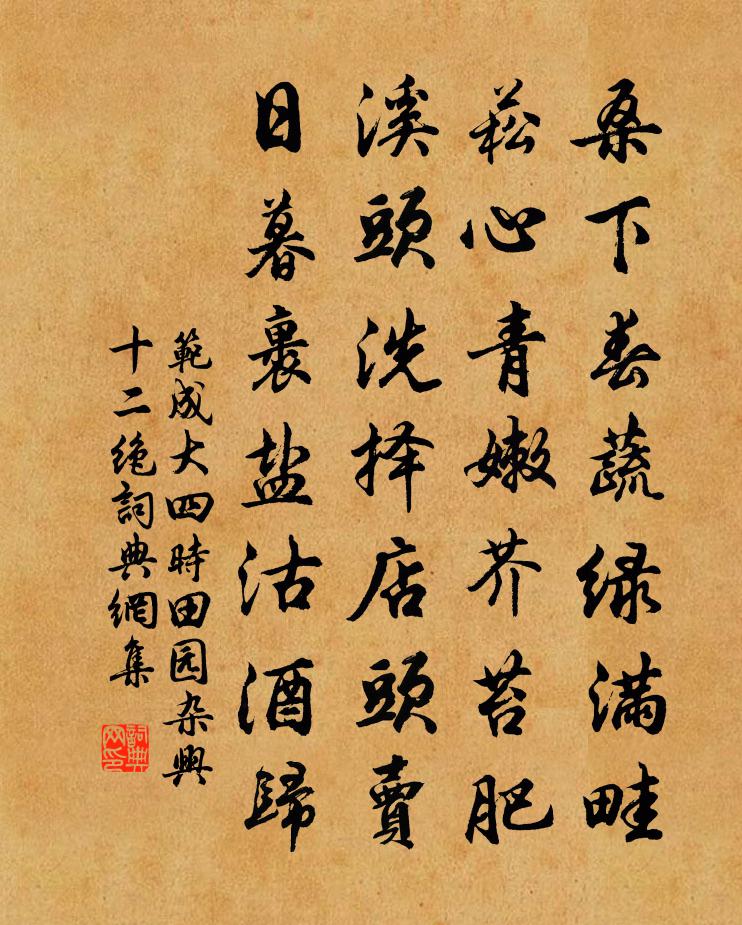 桑下春蔬绿满畦
菘心青嫩芥苔肥
溪頭洗择店頭賣
日暮裹盐沽酒歸
範成大四時田园杂興
十二绝詞典網集
詞典网印